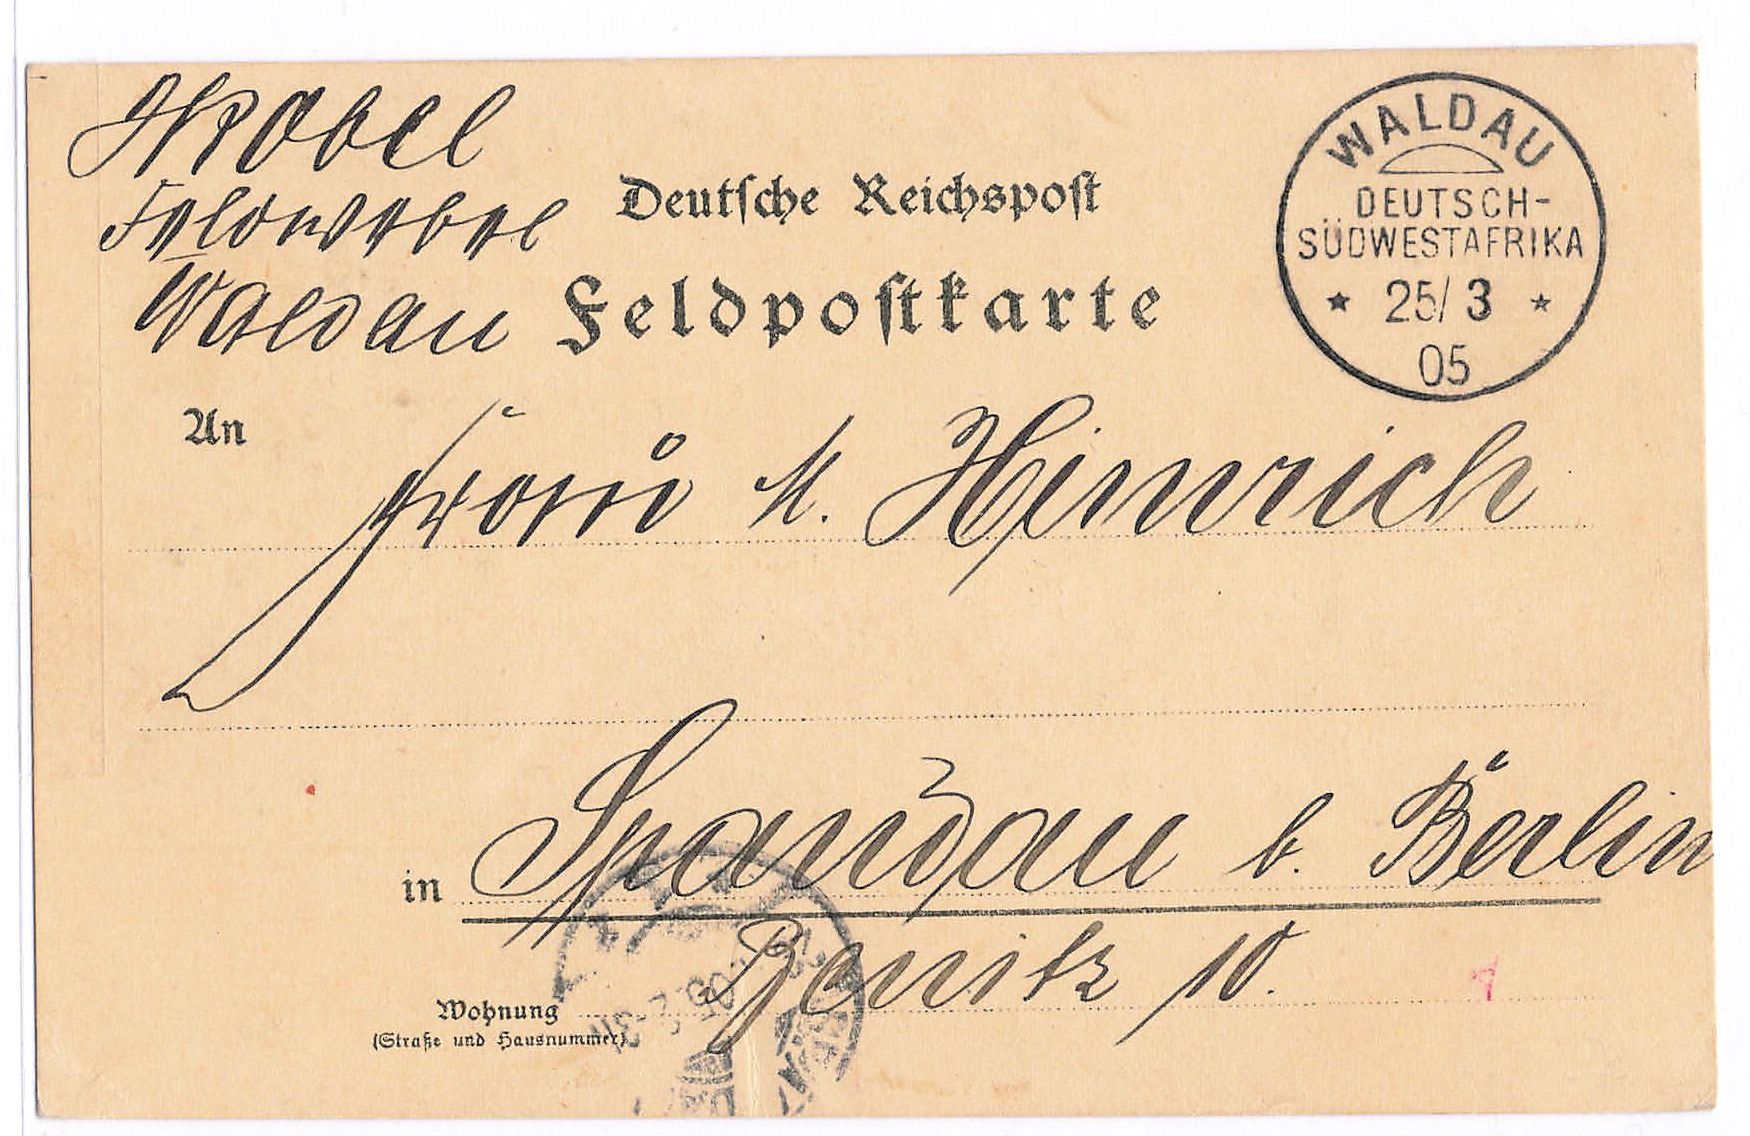 Feldwebel
Waldau
Deutsche Reichspost
Feldpostkarte
WALDAU
DEUTSCH-
SÜDWESTAFRIKA
* 25/3 *
05
An
Frau M. Hinrich
in Spandau b. Berlin
Wohnung Benitz 10.
(Straße und Hausnummer)